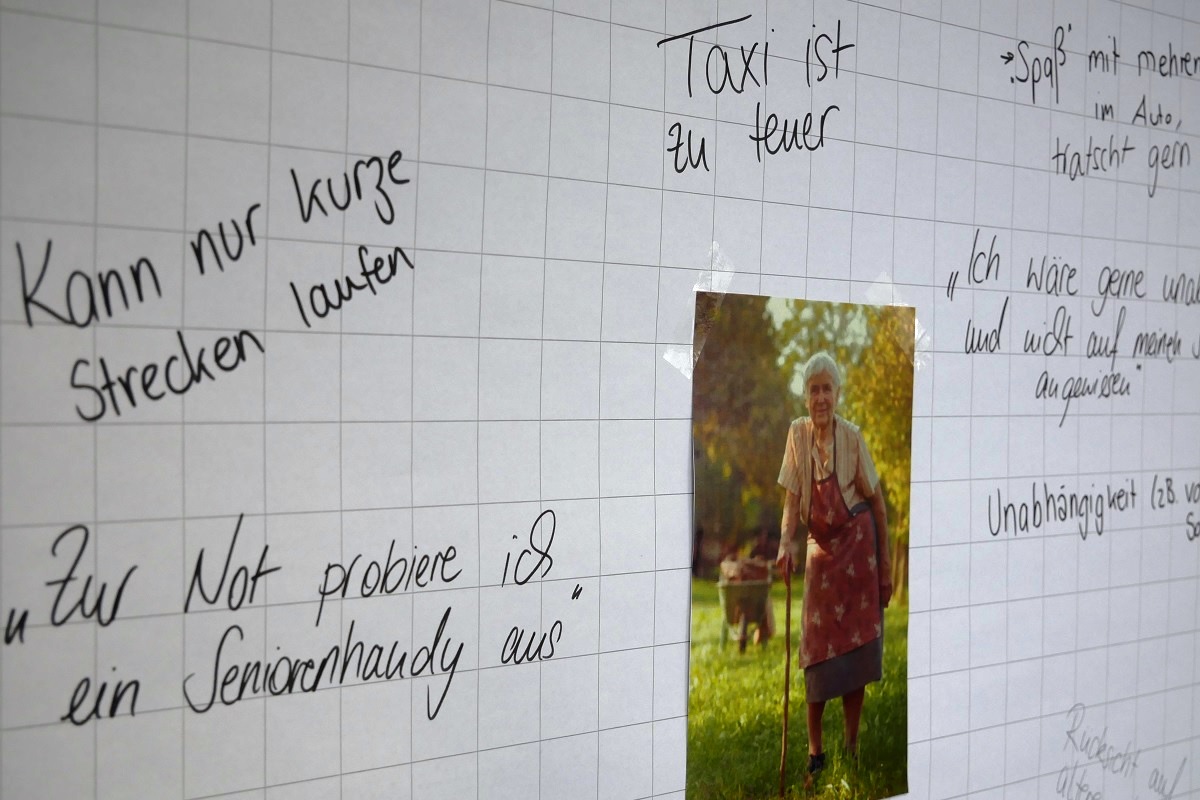 Taxi ist
zu teuer
→ „Spaß" mit mehreren
im Auto,
tratscht gern
Kann nur kurze
Strecken laufen
„Ich wäre gerne
und nicht auf meinen
angewiesen"
Unabhängigkeit (zB.
„Zur Not probiere ich
ein Seniorenhandy aus"
Rücksicht auf
ältere